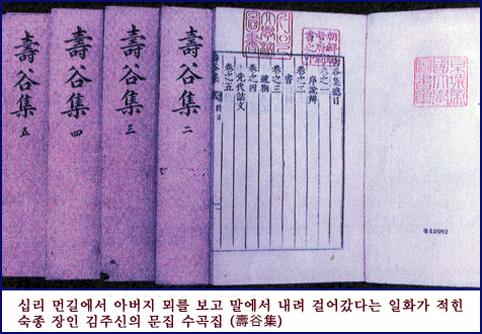 壽谷集 五
壽谷集 四
壽谷集 三
壽谷集 二
谷集總目
卷之一
序說辨
卷之二
書
卷之三
卷之四
先代誌文
卷之五
십리 먼길에서 아버지 뫼를 보고 말에서 내려 걸어갔다는 일화가 적힌
숙종 장인 김주신의 문집 수곡집 (壽谷集)